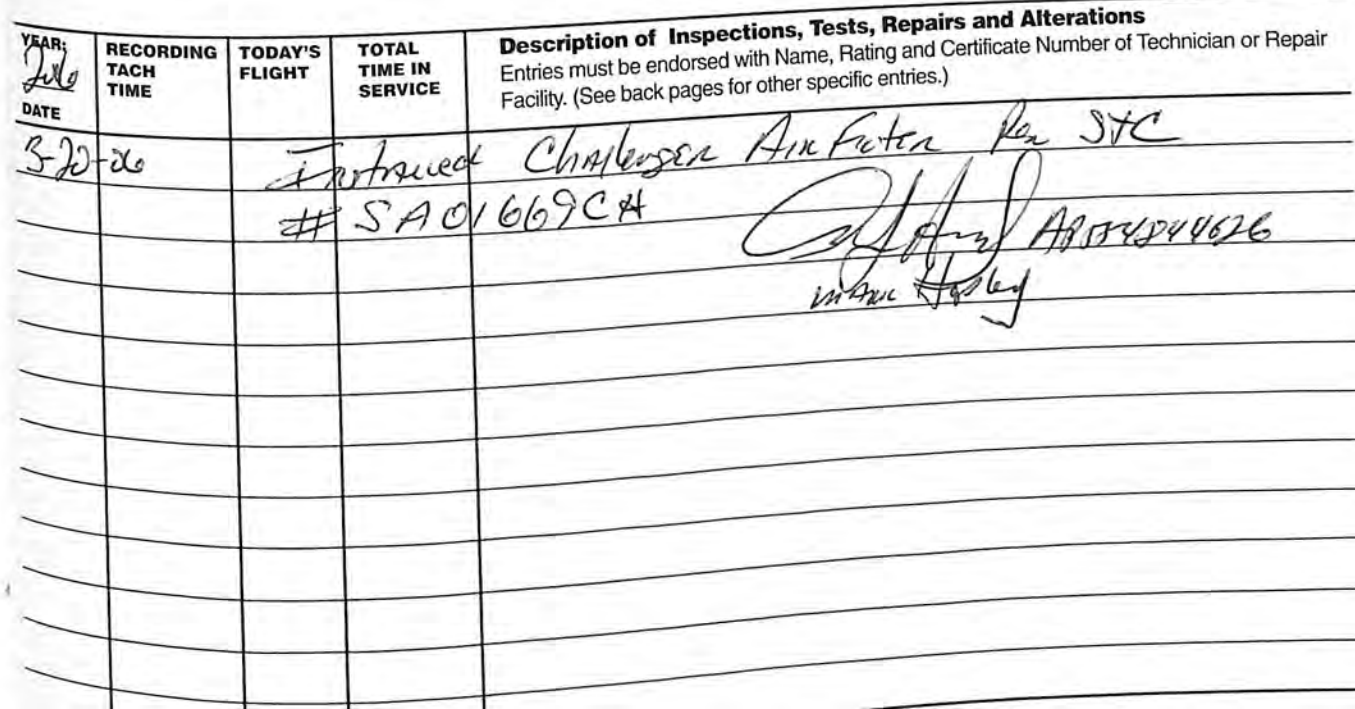 YEAR:
DATE
RECORDING TACH TIME
TODAY'S FLIGHT
TOTAL TIME IN SERVICE
Description of Inspections, Tests, Repairs and Alterations
Entries must be endorsed with Name, Rating and Certificate Number of Technician or Repair
Facility. (See back pages for other specific entries.)
Installed Challenger Air Filter Per STC
# SA01669CH